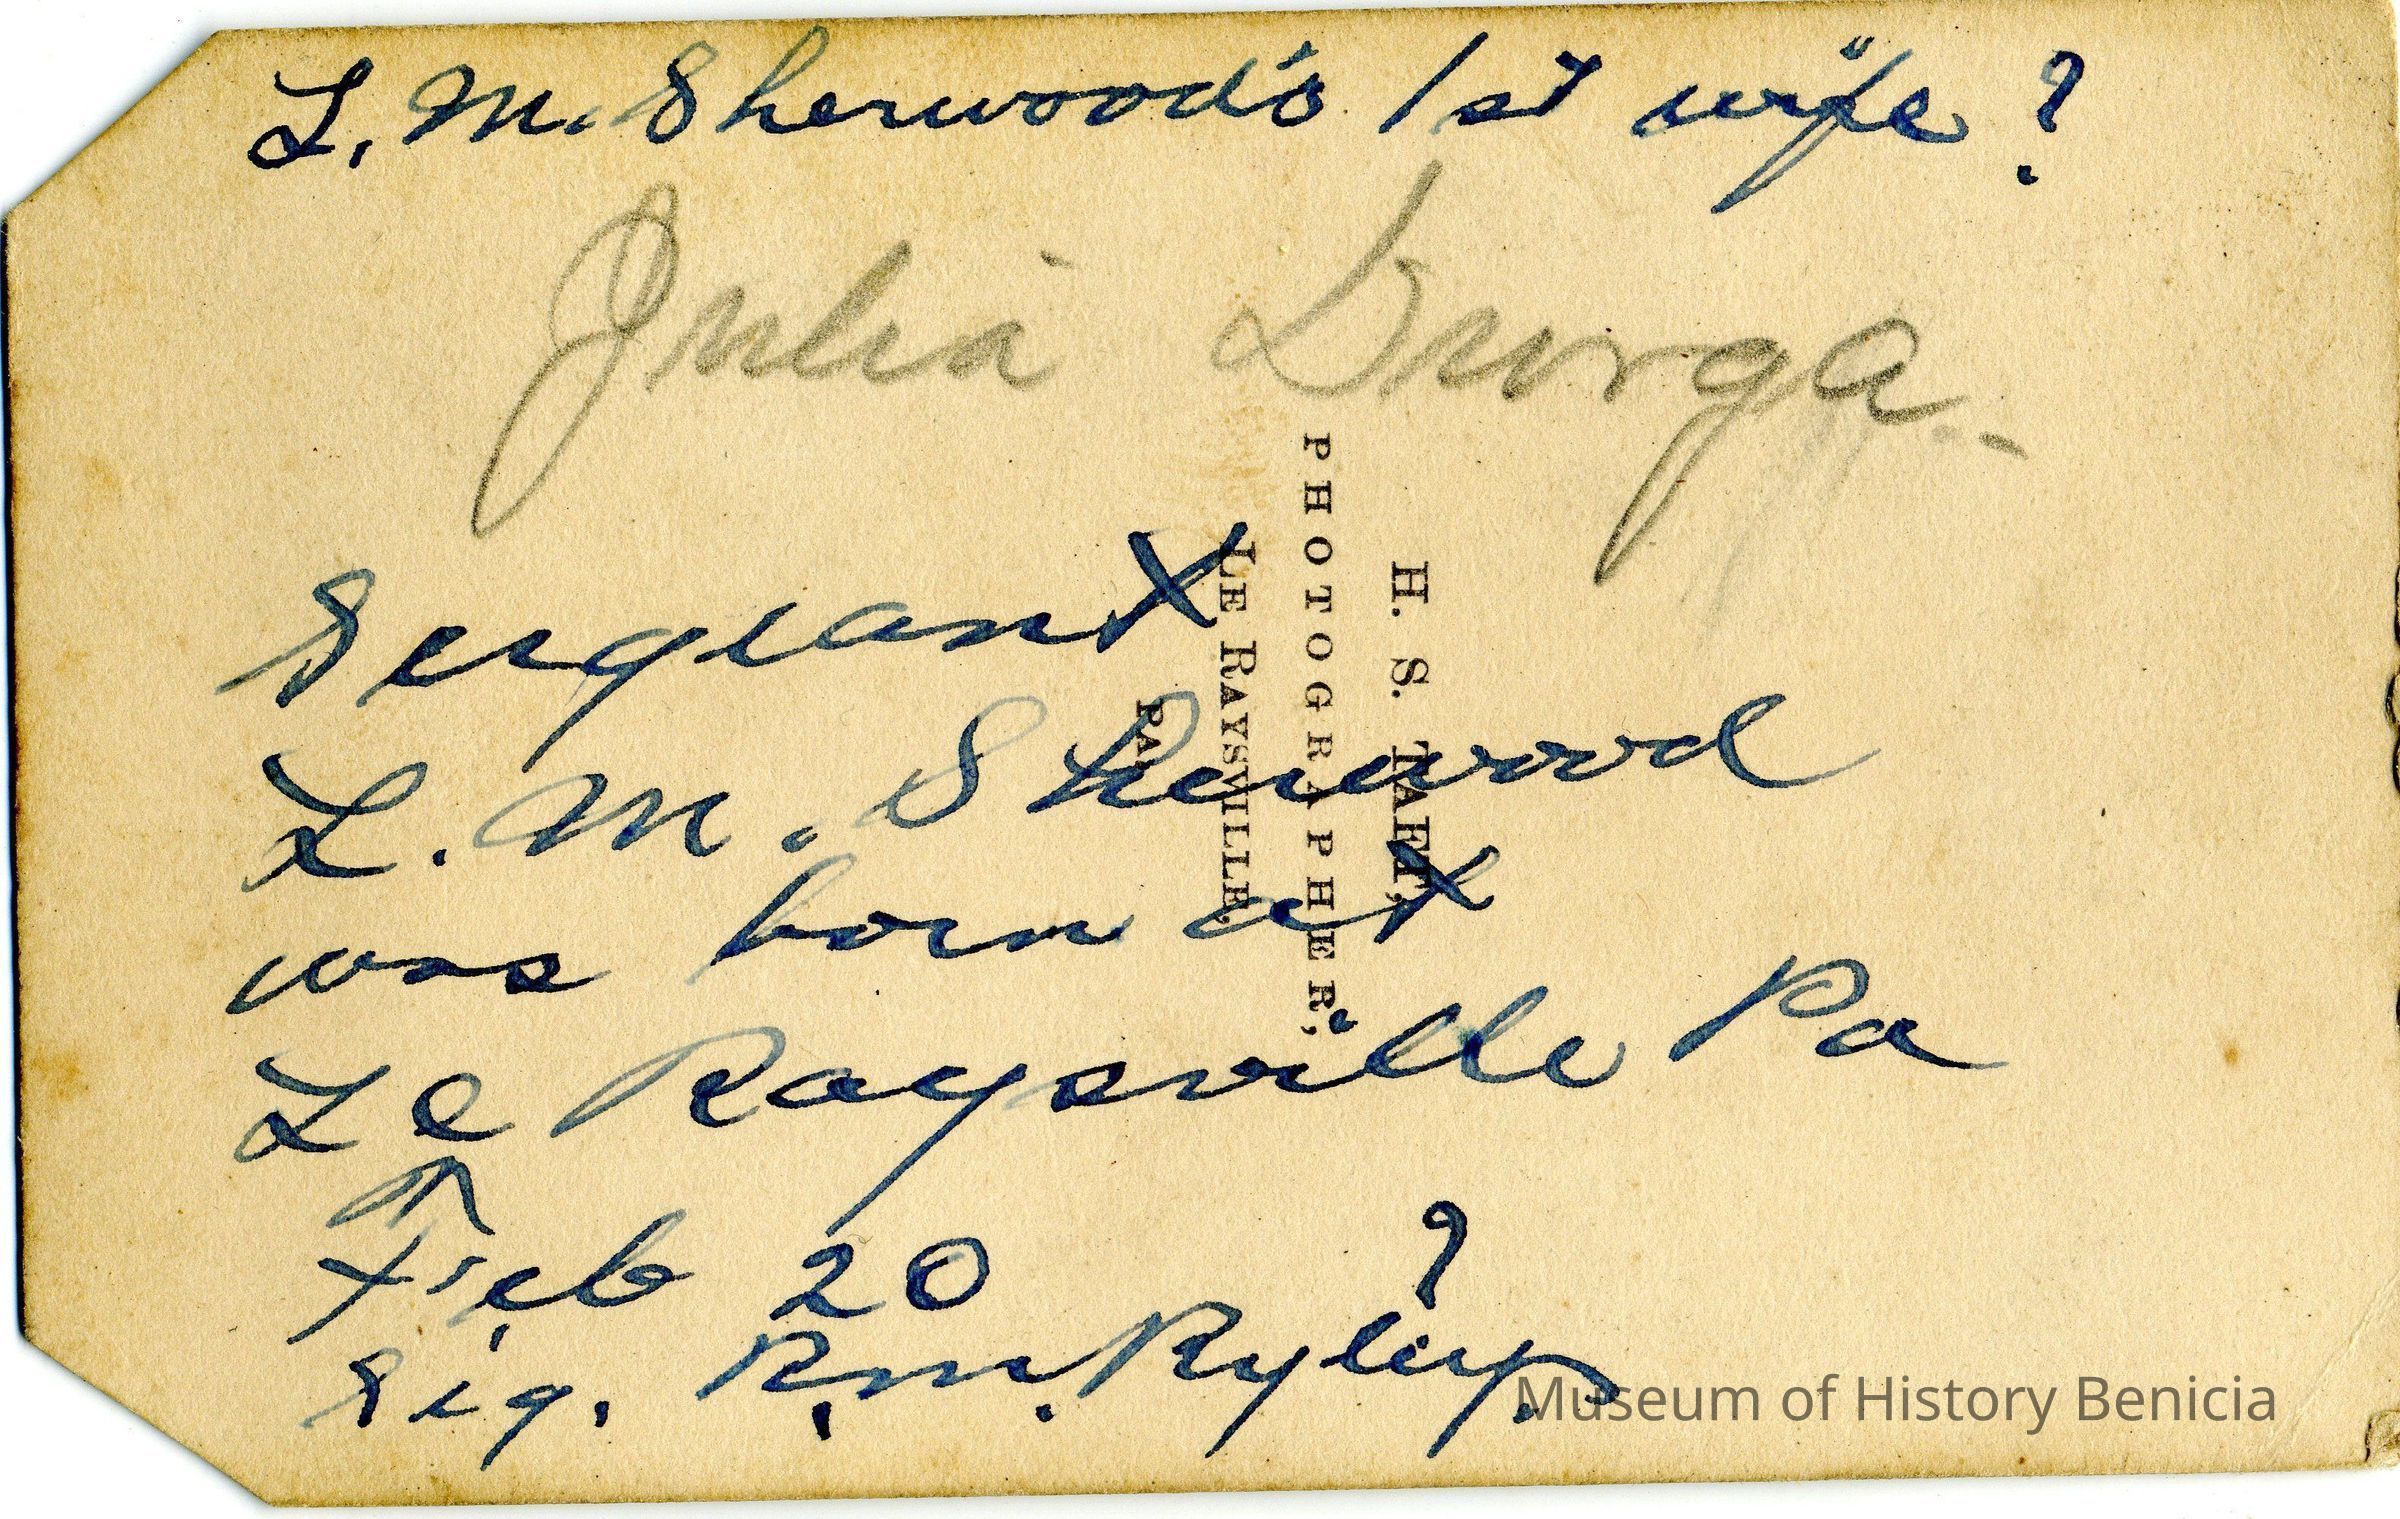 L. M. Sherwood's 1st wife ?
Julia Durga
Sergeant
L. M. Sherwood
was born at
Le Raysville Pa
Feb 20 ?
Sig. R. M. Ryley.
H. S. TAFT,
PHOTOGRAPHER,
LE RAYSVILLE,
PA.
Museum of History Benicia